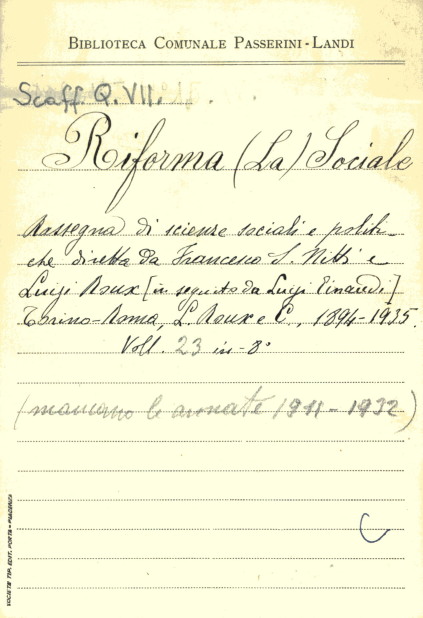 BIBLIOTECA COMUNALE PASSERINI-LANDI
Scaff. Q. VII.
Riforma (La) Sociale
Rassegna di scienze sociali e politi-
che diretta da Francesco S. Nitti e
Luigi Roux [in seguito da Luigi Einaudi]
Torino-Roma, L. Roux e C., 1894-1935.
Voll. 23 in-8°
(mancano le annate 1911-1932)
C
SOCIETÀ TIP. EDIT. PORTA - PIACENZA